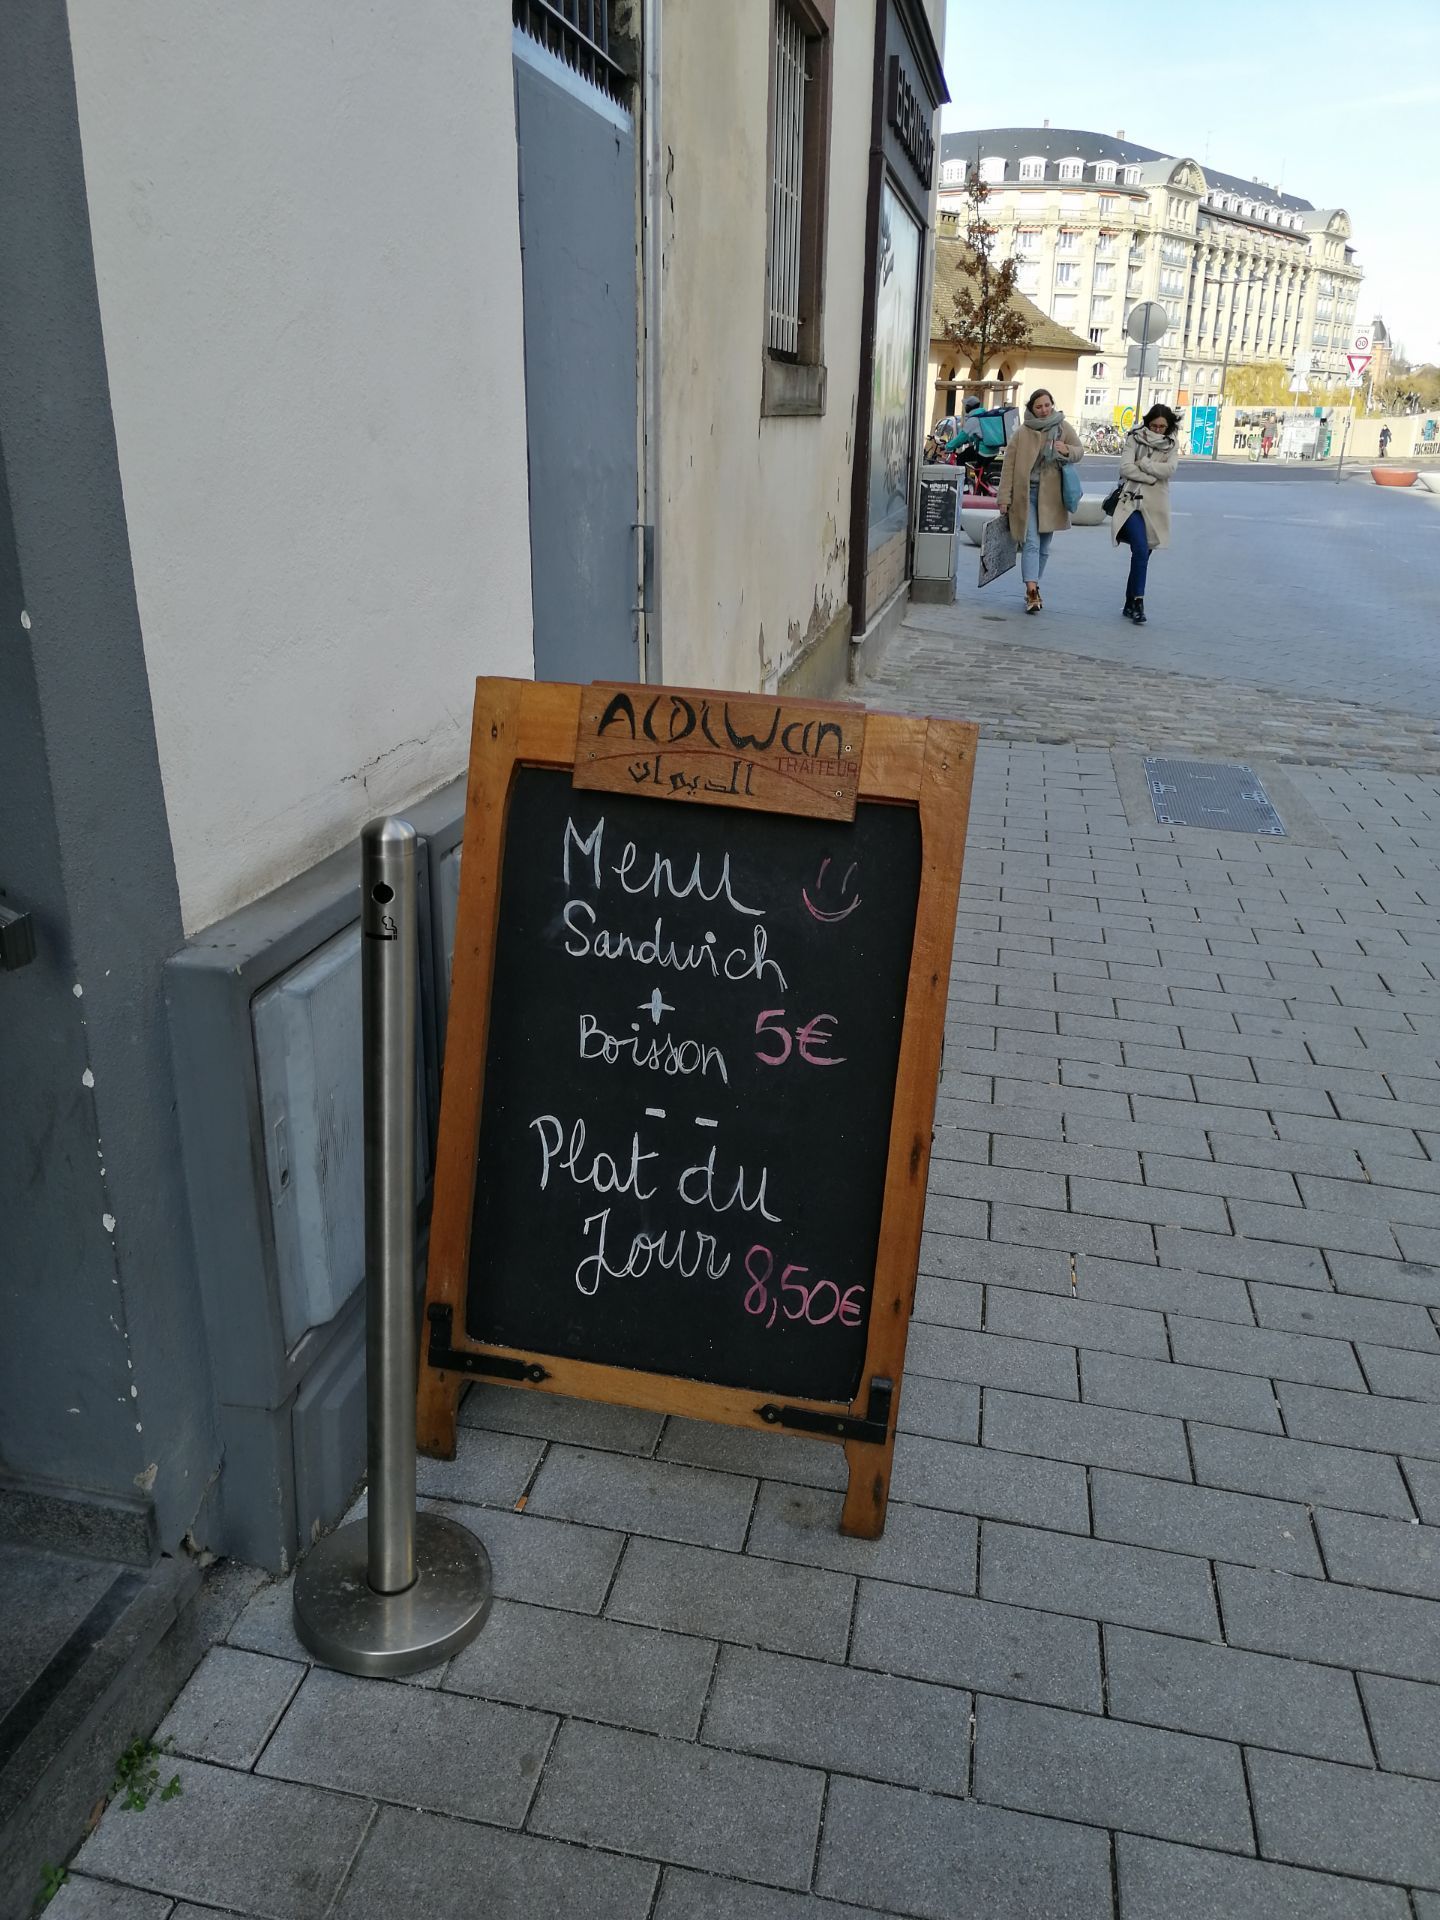 AlDiWan
TRAITEUR
الديوان
Menu
Sandwich
+
Boisson 5€
- -
Plat du
Jour 8,50€
ZONE
30